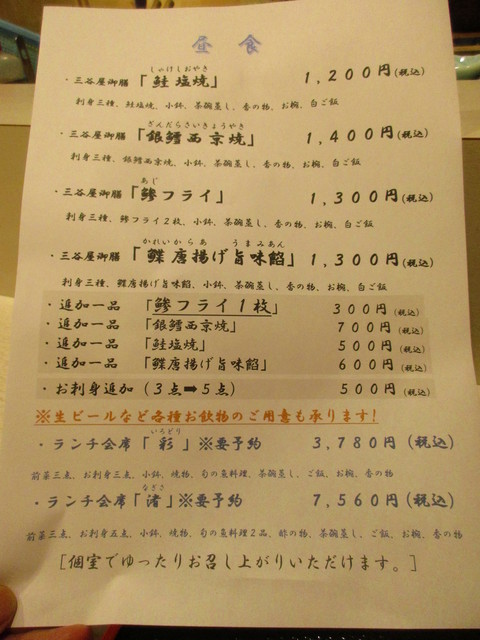 昼食
しゃけしおやき
・三谷屋御膳「鮭塩焼」 1,200円(税込)
刺身三種、鮭塩焼、小鉢、茶碗蒸し、香の物、お椀、白ご飯
ぎんだらさいきょうやき
・三谷屋御膳「銀鱈西京焼」 1,400円(税込)
刺身三種、銀鱈西京焼、小鉢、茶碗蒸し、香の物、お椀、白ご飯
あじ
・三谷屋御膳「鯵フライ」 1,300円(税込)
刺身三種、鯵フライ2枚、小鉢、茶碗蒸し、香の物、お椀、白ご飯
かれいからあ うまみあん
・三谷屋御膳「鰈唐揚げ旨味餡」 1,300円(税込)
刺身三種、鰈唐揚げ旨味餡、小鉢、茶碗蒸し、香の物、お椀、白ご飯
・追加一品 「鯵フライ1枚」 300円(税込)
・追加一品 「銀鱈西京焼」 700円(税込)
・追加一品 「鮭塩焼」 500円(税込)
・追加一品 「鰈唐揚げ旨味餡」 600円(税込)
・お刺身追加(3点➡5点) 500円(税込)
※生ビールなど各種お飲物のご用意も承ります!
いろどり
・ランチ会席「彩」※要予約 3,780円(税込)
前菜三点、お刺身三点、小鉢、焼物、旬の魚料理、茶碗蒸し、ご飯、お椀、香の物
なぎさ
・ランチ会席「渚」※要予約 7,560円(税込)
前菜三点、お刺身五点、小鉢、焼物、旬の魚料理2品、酢の物、茶碗蒸し、ご飯、お椀、香の物
[個室でゆったりお召し上がりいただけます。]